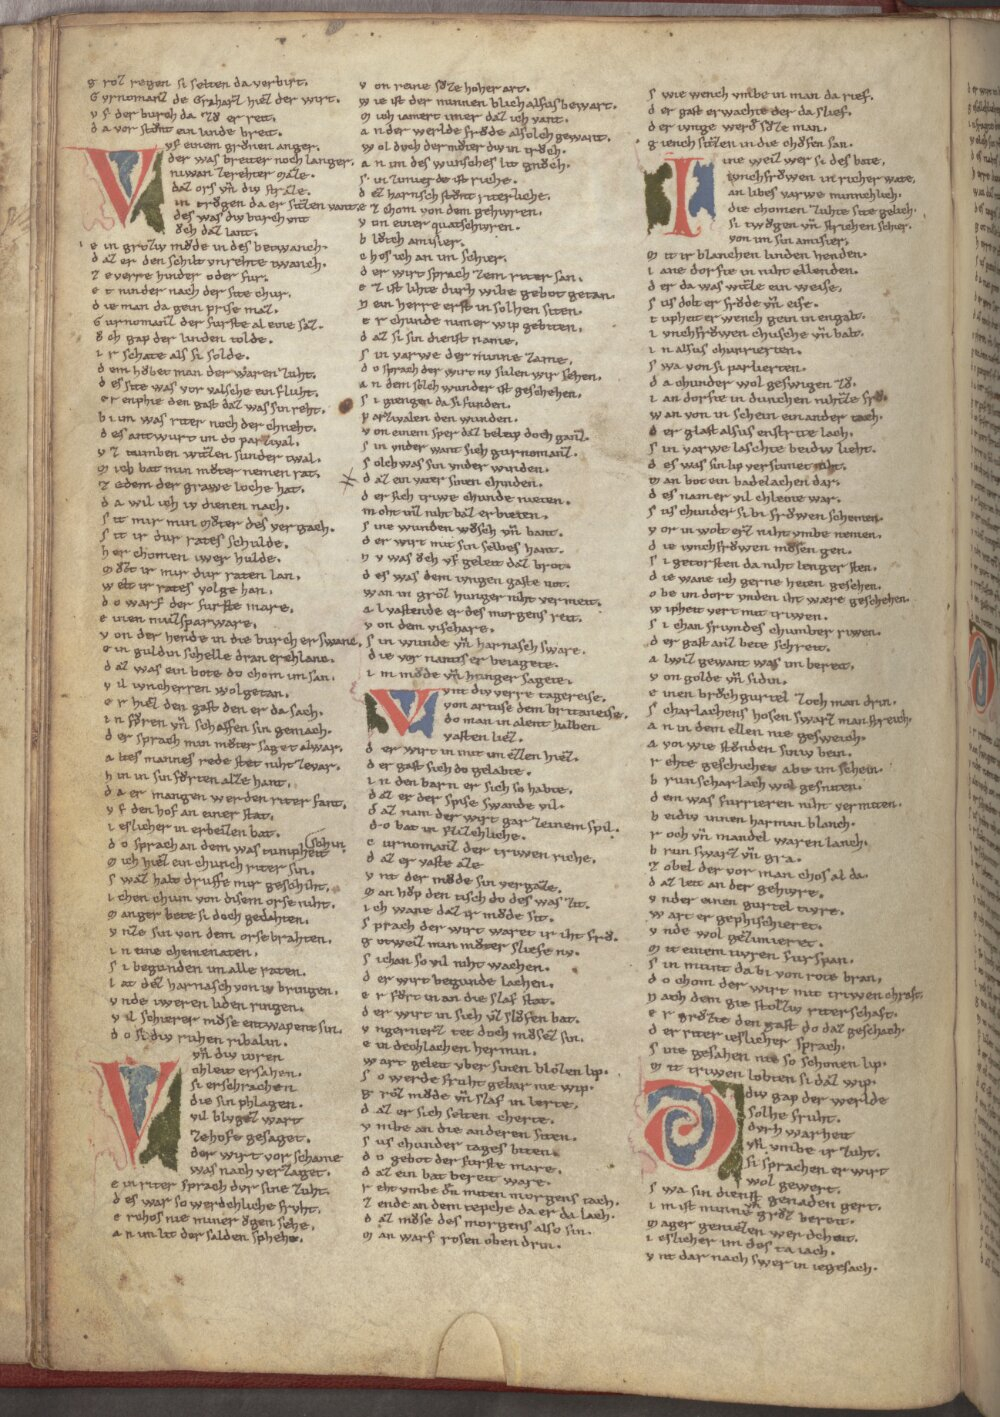 g roz regen si selten da verbirt.
G vrnomanz de Grahарz hiez der wirt.
v f der burch da zv er reit.
d a vor stont ein linde breit.
V vf einem gronen anger.
der was breiter noch langer.
niwan ze rehter maze.
daz ors vn div straze.
in trogen da er sitzen vant.
des was div burch vnt
och daz lant.
e in groziv mode in des betwanch.
d az er den schilt vnrehte swanch.
z e verre hinder oder fur.
e t ninder nach der site chur.
d ie man da gein prise maz.
G urnomanz der furste al eine saz.
o ch gap der linden tolde.
i r schate als si solde.
d em hobet man der waren zuht.
d es site was vor valsche ein fluht.
e r enphie den gast daz was sin reht.
b i im was riter noch der chneht.
d es antwurt im do parzival.
v z tumben witzen sunder twal.
m ich bat min moter nemen rat.
z e dem der grawe loche hat.
d a wil ich iv dienen nach.
s it mir min moter des veriach.
s it ir dur rates schulde.
h er chomen iwer hulde.
m ozt ir mir dur raten lan.
w elt ir rates volge han.
d o warf der furste mare.
e inen muzsparware.
v on der hende in die burch er swanc.
e in guldin schelle dran erchlanc.
d az was ein bote do chom im san.
v il iuncherren wolgetan.
e r hiez den gast den er da sach.
i n foren vn schaffen sin gemach.
d er sprach min moter saget al war.
a ltes mannes rede stet niht ze var.
h in in sin forten alze hant.
d a er mangen werden riter fant.
v f den hof an einer stat.
i eslicher in erbeizen bat.
d o sprach an dem was tumpheit schin.
m ich hiez ein chunch riter sin.
s waz halt druffe mir geschiht.
i chen chum von disem orse niht.
m anger bete si doch gedahten.
v nze sin von dem orse brahten.
i n eine chemenaten.
s i begunden im alle raten.
l at dez harnasch von iv bringen.
v nde iweren liden ringen.
v il schierer mose entwapent sin.
d o si div ruhen ribalin.
V vn div toren
chleit ersahen.
si erschrachen
die sin phlagen.
vil blygez wart
ze hofe gesaget.
der wirt vor schame
was nach verzaget.
e in riter sprach dvr sine zuht.
d es war so werdchliche fruht.
e rchos nie miner ogen sehe.
a n im lit der salden spehe.
v on reine soze hoher art.
w ie ist der minnen blich alsus bewart.
m ich iamert imer daz ich vant.
a n der werlde frode alsolch gewant.
w ol doch der moter div in troch.
a n im des wunsches lit gnoch.
s in zimierde ist riche.
d ez harnsch stont riterliche.
e z chom von dem gehivren.
v on einer quatschivren.
b lotch amisier.
e rchos ich an im schier.
d er wirt sprach zem riter san.
e z ist lihte durh wibe gebot getan.
n ein herre erst in solhen siten.
e r chunde nimer wip gebiten.
d az si sin dienst name.
s in varwe der minne zame.
d o sprach der wirt nv sulen wir sehen.
a n dem solch wunder ist geschehen.
s i giengen da si funden.
p arzivalen den wunden.
v on einem sper daz beleip doch ganz.
s in vnder want sich gurnomanz.
s olch was sin vnder winden.
d az ein vater sinen chinden.
d er sich triwe chunde nieten.
m oht inz niht baz erbieten.
s ine wunden wosch vn bant.
d er wirt mit sin selbes hant.
n v was och vf geleit daz brot.
d es was dem iungen gaste not.
w an in groz hunger niht vermeit.
a l vastende er des morgens reit.
v on dem vischare.
s in wunde vn harnasch sware.
d ie vor nantes er beiagete.
i m mode vn hunger sagete.
V vnt div verre tagereise.
von artuse dem brittaneise.
do man in alent halben
vasten liez.
d er wirt in mit im ezzen hiez.
d er gast sich do gelabte.
i n den barn er sich so habte.
d az er der spise swande vil.
d az nam der wirt gar ze einem spil.
d o bat in flizchliche.
G urnomanz der triwen riche.
d az er vaste aze
v nt der mode sin vergaze.
m an hop den tisch do des was zit.
i ch wane daz ir mode sit.
s prach der wirt waret ir iht fro.
g otweiz min moter sliefe nv.
s i chan so vil niht wachen.
d er wirt begunde lachen.
e r fort in an die slaf stat.
d er wirt in sich vz slofen bat.
v ngernerz tet doch mosez sin.
e in dechlachen hermin.
w art geleit vber sinen blozen lip.
s o werde fruht gebar nie wip.
g roz mode vn slaf in lerte.
d az er sich selten cherte.
v mbe an die anderen siten.
s us chunder tages biten.
d o gebot der furste mare.
d az ein bat bereit ware.
r eht vmbe den miten morgens tach.
z ende an dem tepche da er da lach.
d az mose des morgens also sin.
m an warf rosen oben drin.
s wie wench vmbe in man da rief.
d er gast erwachte der da slief.
d er iunge werd soze man.
g iench sitzen in die chofen san.
I ine weiz wer si des bate.
iunchfrowen in richer wate.
an libes varwe minnchlich.
die chomen zuhte site gelich.
si twogen vn strichen schier.
von im sin amisier.
m it ir blanchen linden henden.
i ane dorfte in niht ellenden.
d er da was witze ein weise.
s us dolt er frode vn eise.
t upheit er wench gein in engalt.
i vnchfrowen chusche vn balt.
i n alsus chunrierten.
s wa von si parlierten.
d a chunder wol geswigen zo.
i an dorfte in dunchen niht ze fro.
w an von in schein ein ander tach.
d er glast alsus en strite lach.
s in varwe laschte beidiv lieht.
d es was sin lip versumet niht.
m an bot ein badelachen dar.
d es nam er vil chleine war.
s us chunder si bi frowen schemen.
v or in wolt erz niht vmbe nemen.
d ie iunchfrowen mosen gen.
s i getorsten da niht lenger sten.
d ie wane ich gerne heten gesehen.
o be im dort vnden iht wære geschehen.
w ipheit vert mit triwen.
s i chan friundes chumber riwen.
d er gast anz bete schreit.
a lwiz gewant was im bereit.
v on golde vn sidin.
e inen brochgurtel zoch man drin.
s charlachens hosen swarz man streich.
a n in dem ellen nie gesweich.
a von wie stonden siniv bein.
r ehte geschichet abe im schein.
b runscharlach wol gesniten.
d em was furrieren niht vermiten.
b eidiv innen harman blanch.
r och vn mandel waren lanch.
b run swarz vn gra.
z obel der vor man chos al da.
d az leit an der gehivre.
v nder einen gurtel tivre.
w art er gephischieret.
v nde wol gezimieret.
m it einem tivren furspan.
s in munt da bi von rote bran.
d o chom der wirt mit triwen chraft.
n ach dem gie stolziv riterschaft.
e r grozte den gast do daz geschach.
d er riter ieslicher sprach.
s ine gesahen nie so schonen lip.
m it triwen lobten si daz wip.
D div gap der werlde
solhe fruht.
dvrh warheit
vn vmbe ir zuht.
si sprachen er wirt
wol gewert.
s wa sin dienst genaden gert.
i m ist minne vn groz bereit.
m ager geniezen werdcheit.
i eslicher im des ta iach.
v nt dar nach swer in iegesach.